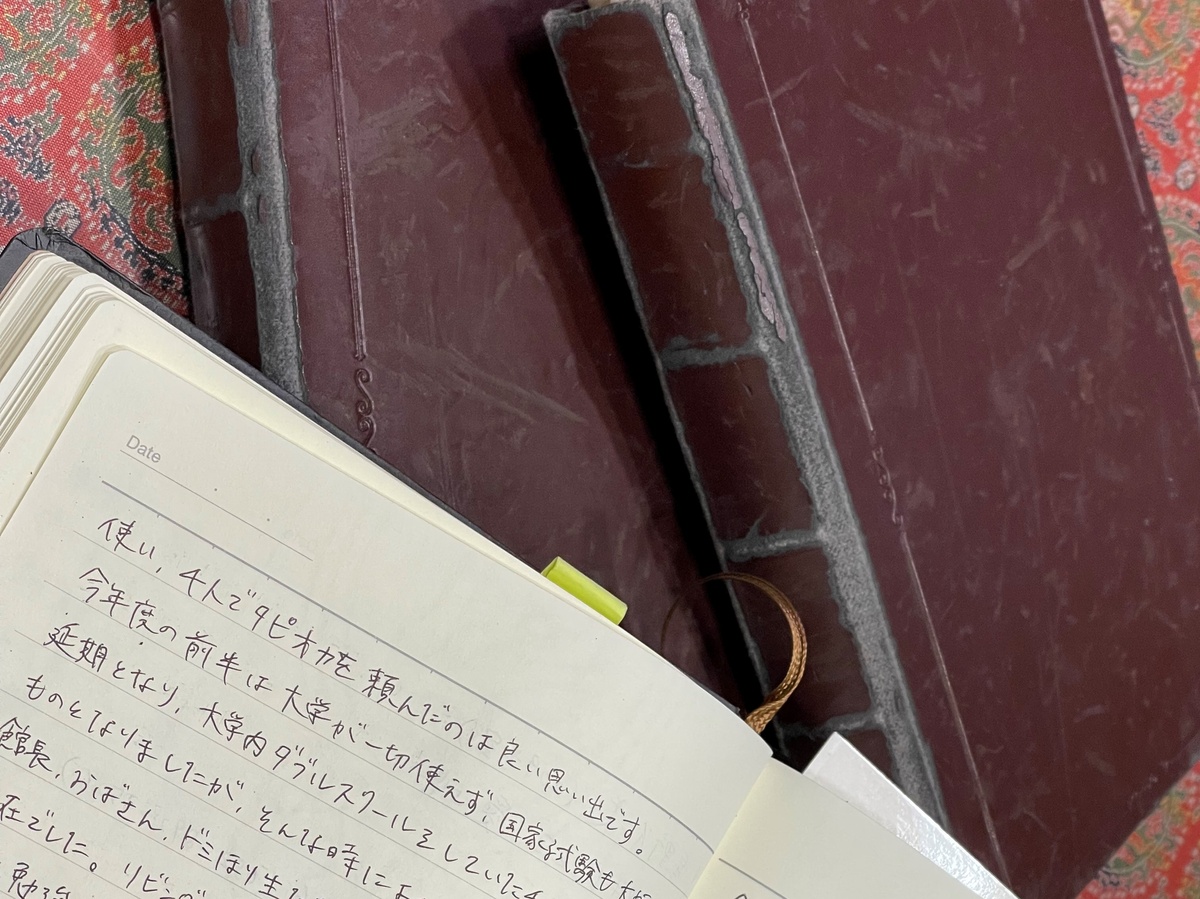 Date
使い、4人でタピオカを頼んだのは良い思い出です。
今年度の前半は大学が一切使えず、国家試験も大
延期となり、大学内ダブルスクールをしていた
ものとなりましたが、そんな時に
館長、おばさん、ドミほり生
在でした。リビング
勉強